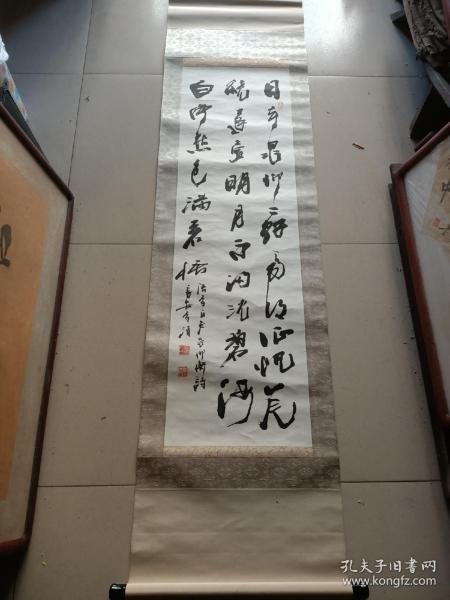 日本晁卿辞帝都征帆一片
绕蓬壶明月不归沉碧海
白云愁色满苍梧
晁卿衡诗
孔夫子旧书网
www.kongfz.com